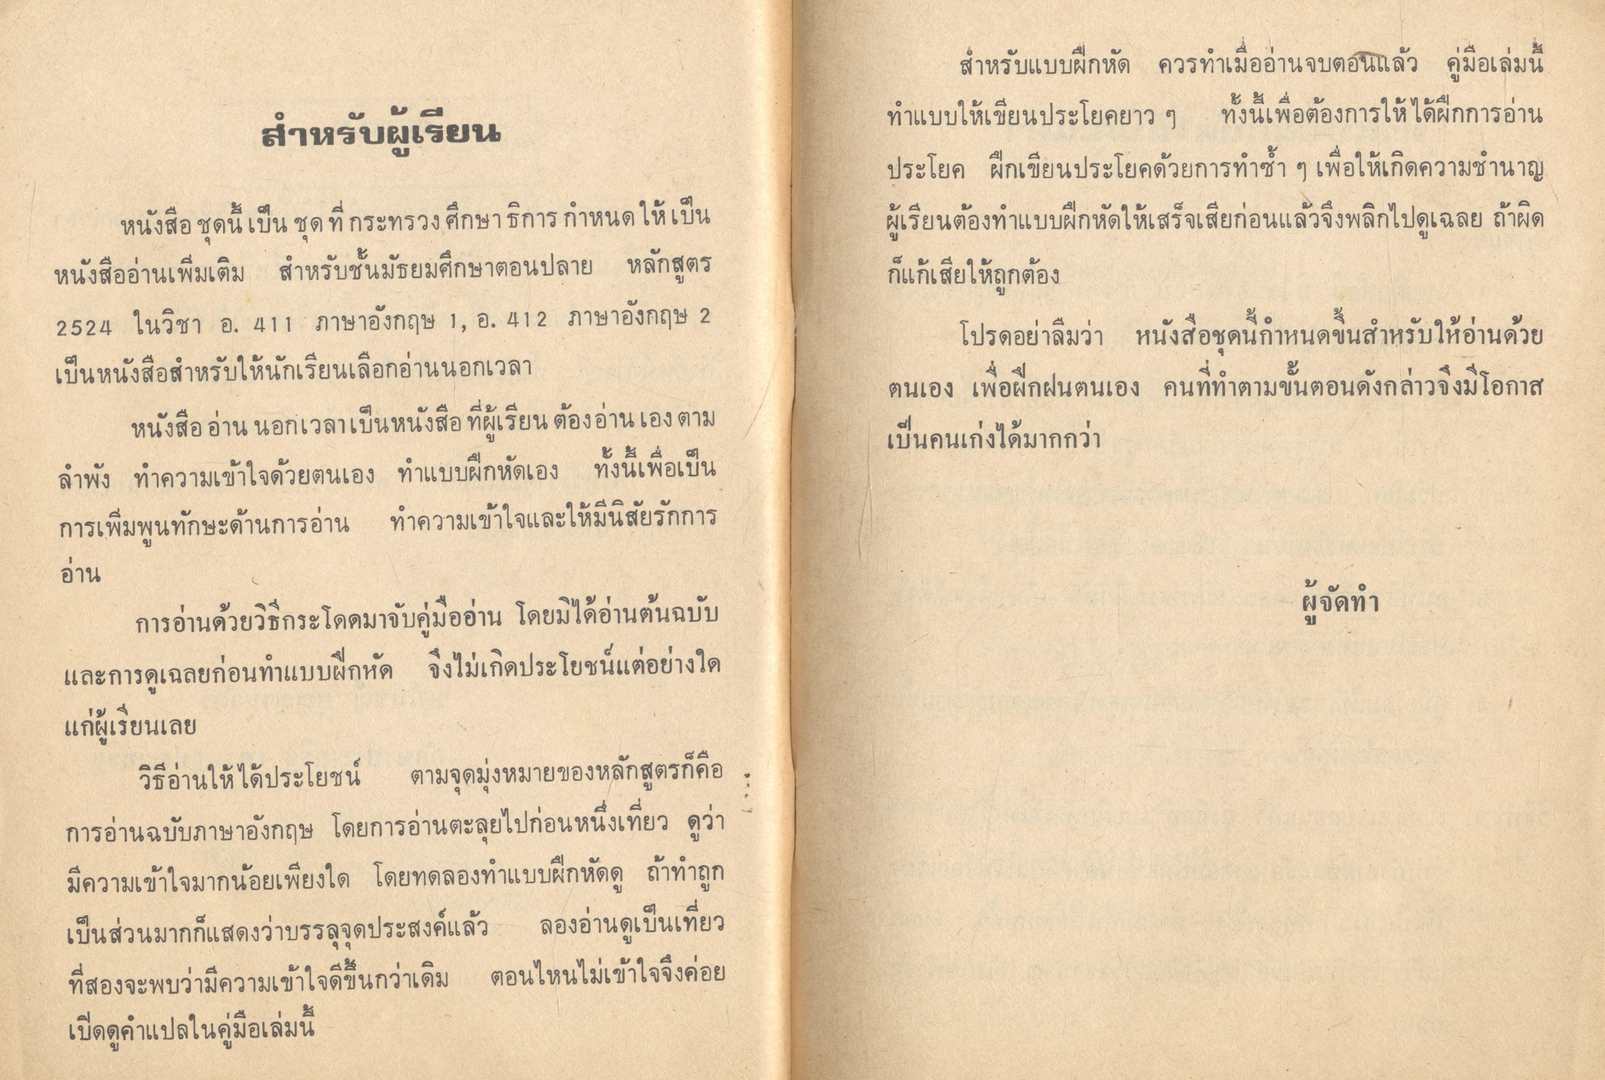 สำหรับผู้เรียน
หนังสือชุดนี้เป็นชุดที่กระทรวงศึกษาธิการกำหนดให้เป็น
หนังสืออ่านเพิ่มเติม สำหรับชั้นมัธยมศึกษาตอนปลาย หลักสูตร
2524 ในวิชา อ. 411 ภาษาอังกฤษ 1, อ. 412 ภาษาอังกฤษ 2
เป็นหนังสือสำหรับให้นักเรียนเลือกอ่านนอกเวลา
หนังสืออ่านนอกเวลาเป็นหนังสือที่ผู้เรียนต้องอ่านเองตาม
ลำพัง ทำความเข้าใจด้วยตนเอง ทำแบบฝึกหัดเอง ทั้งนี้เพื่อเป็น
การเพิ่มพูนทักษะด้านการอ่าน ทำความเข้าใจและให้มีนิสัยรักการ
อ่าน
การอ่านด้วยวิธีกระโดดมาจับคู่มืออ่าน โดยมิได้อ่านต้นฉบับ
และการดูเฉลยก่อนทำแบบฝึกหัด จึงไม่เกิดประโยชน์แต่อย่างใด
แก่ผู้เรียนเลย
วิธีอ่านให้ได้ประโยชน์ ตามจุดมุ่งหมายของหลักสูตรก็คือ
การอ่านฉบับภาษาอังกฤษ โดยการอ่านตะลุยไปก่อนหนึ่งเที่ยว ดูว่า
มีความเข้าใจมากน้อยเพียงใด โดยทดลองทำแบบฝึกหัดดู ถ้าทำถูก
เป็นส่วนมากก็แสดงว่าบรรลุจุดประสงค์แล้ว ลองอ่านดูเป็นเที่ยว
ที่สองจะพบว่ามีความเข้าใจดีขึ้นกว่าเดิม ตอนไหนไม่เข้าใจจึงค่อย
เปิดดูคำแปลในคู่มือเล่มนี้
สำหรับแบบฝึกหัด ควรทำเมื่ออ่านจบตอนแล้ว คู่มือเล่มนี้
ทำแบบให้เขียนประโยคยาว ๆ ทั้งนี้เพื่อต้องการให้ได้ฝึกการอ่าน
ประโยค ฝึกเขียนประโยคด้วยการทำซ้ำ ๆ เพื่อให้เกิดความชำนาญ
ผู้เรียนต้องทำแบบฝึกหัดให้เสร็จเสียก่อนแล้วจึงพลิกไปดูเฉลย ถ้าผิด
ก็แก้เสียให้ถูกต้อง
โปรดอย่าลืมว่า หนังสือชุดนี้กำหนดขึ้นสำหรับให้อ่านด้วย
ตนเอง เพื่อฝึกฝนตนเอง คนที่ทำตามขั้นตอนดังกล่าวจึงมีโอกาส
เป็นคนเก่งได้มากกว่า
ผู้จัดทำ